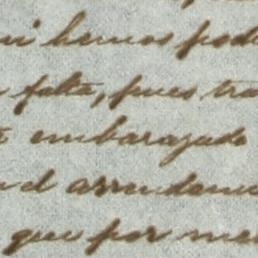 ni hemos pod
falta, pues tra
embarazado
el arrendam
que por me